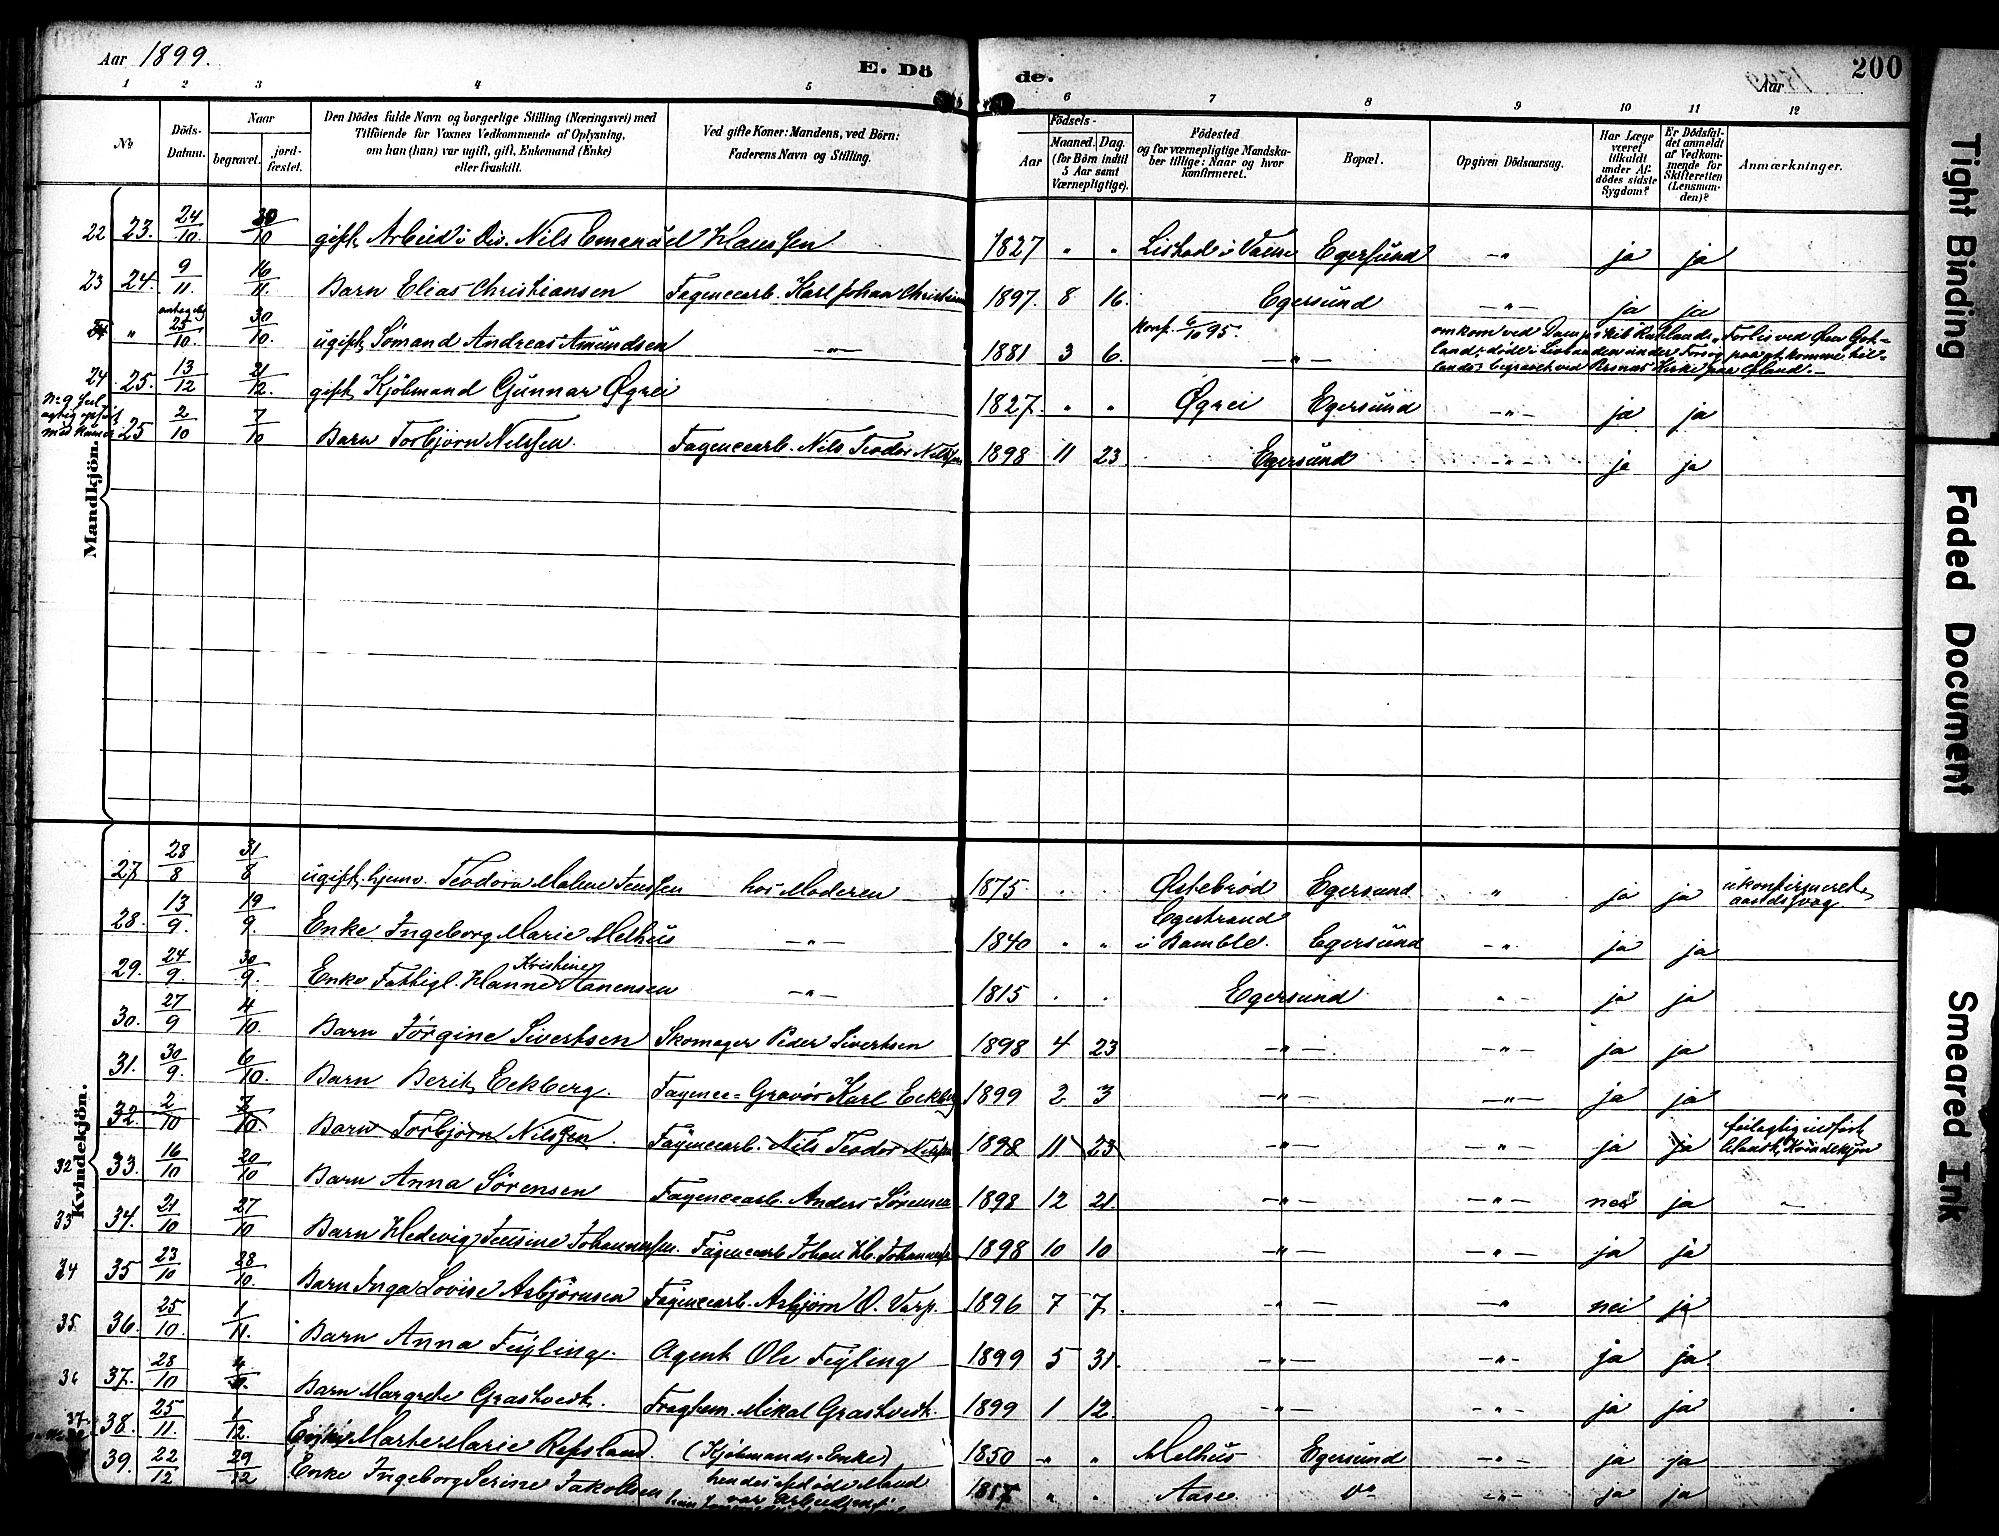 Aar 1899. E. Dö de. Aar 200
1 2 3 4 5 6 7 8 9 10 11 12
No Döds-Datum. Naar begravet. jordfæstet. Den Dödes fulde Navn og borgerlige Stilling (Næringsvei) med Tilföiende for Voxnes Vedkommende af Oplysning, om han (hun) var ugift, gift, Enkemand (Enke) eller fraskilt. Ved gifte Koner: Mandens, ved Börn: Faderens Navn og Stilling. Födsels- Aar Maaned. Dag. (for Börn indtil 5 Aar samt Værnepligtige). Födested og for værnepligtige Mandskaber tillige: Naar og hvor konfirmeret. Bopæl. Opgiven Dödsaarsag. Har Læge været tilkaldt under Afdödes sidste Sygdom? Er Dödsfaldet anmeldt af Vedkommende for Skifteretten (Lensmanden)? Anmærkninger.
Mandkjön.
22 23. 24/10. 30/10 gift Arbeid i Div. Nils Emanuel Hanssen 1827 " " Egersund -"- ja ja
23 24. 9/11. 16/11. Barn Elias Christiansen Fagencearb. Karl Johan 1897 8 16. Egersund -"- ja ja
" antagelig 25/10. 30/10. ugift Sømand Andreas Amundsen -"- 1881 3 6. Konf. 6/10 95. -"- omkom ved Forlis ved Øen Gotland, døde i under Forsøg paa at komme tilland, begravet ved Kirke paa
24 25. 13/12 21/12. gift Kjöbmand Gunnar Øgrei 1827. " " Øgrei Egersund -"- ja ja
No 9 25 2/10 7/10 Barn Torbjørn Nilssen. Fagencearb. Nils Teodor Nilssen 1898 11 23 Egersund -"- ja ja
Kvindekjön.
27 28/8 31/8 ugift hjemv. Teodora Malene Jenssen hos Moderen 1875 . . Østebrød Egersund " ja ja ukonfirmeret, aandssvag
28. 13/9. 19/9. Enke Ingeborg Marie Melhus -"- 1840 " " i Bamble. Egersund -"- ja ja
29. 24/9. 30/9. Enke Fattigl. Hanne Kristine Hanensen -"- 1815 . . Egersund " ja ja
30. 27/9 4/10. Barn Jørgine Sivertsen Skomager Peder Sivertsen 1898 4 23 -"- -"- ja ja
31. 30/9. 6/10. Barn Berit Eckberg. Fayence-Gravør Karl Eckberg 1899 2 3 -"- -"- ja ja
32. 2/10 7/10 Barn Torbjørn Nilssen. Fayencearb. Nils Teodor Nilssen 1898 11 23 -"- -"- ja ja feilagtig indført blandt Kvindekjøn
32 33. 16/10 20/10 Barn Anna Sörensen Fayencearb. Anders Sörensen 1898 12 21. -"- -"- nei ja
33 34. 21/10 27/10 Barn Hedevig Jensine Johannessen. Fayencearb Johan 1898 10 10 -"- -"- ja ja
34 35 23/10 28/10. Barn Inga Lovise Asbjørnsen Fayencearb. Asbjørn O. Varp. 1896 7 7. " - -"- nei ja
35 36. 25/10. 1/11. Barn Anna Fugling. Agent Ole Fugling 1899 5 31. -"- -"- ja ja.
36 37. 28/10 4/11. Barn Margrete Grastvedt. Fragtem. Mikal Grastvedt. 1899 1 12. -"- -"- ja ja
37 38. 25/11. 1/12. Enke Marte Marie Refsland. (Kjöbmands-Enke) 1850 " " Melhus Egersund -"- ja ja
39. 22/12 29/12 Enke Ingeborg Serine Jakobsen hendes afdøde Mand var 1817 " " Aase do -"- ja ja
Tight Binding
Faded Document
Smeared Ink